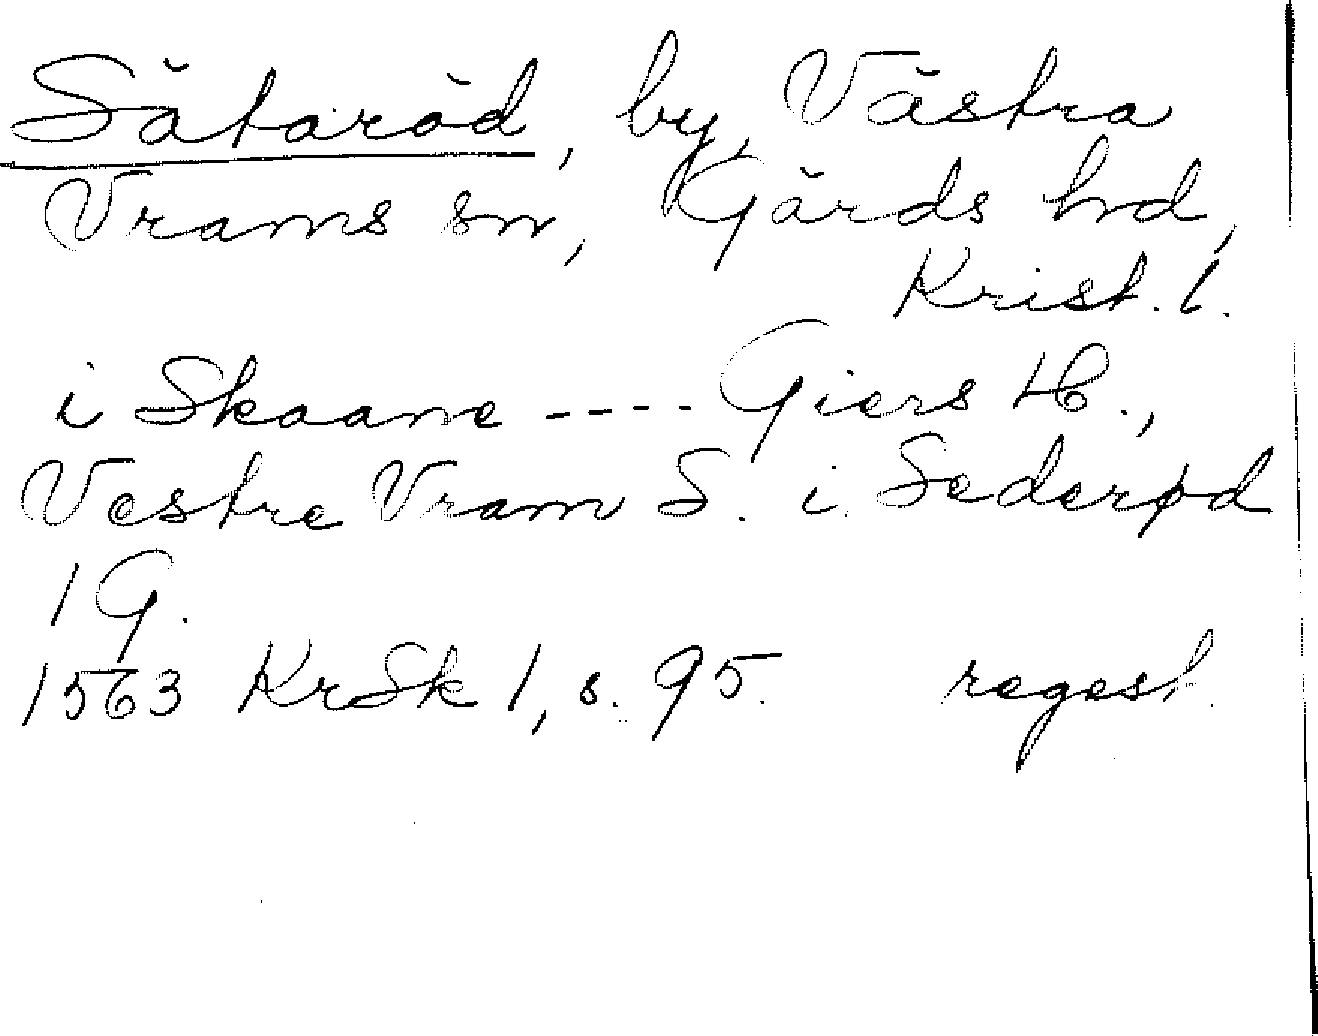 Sätaröd, by, Västra
Vrams sn, Gärds hd,
Krist. l.
i Skaane ---- Giers H.,
Vestre Vram S. i Sederød
1 G.
1563 KrSk 1, s. 95. regest.